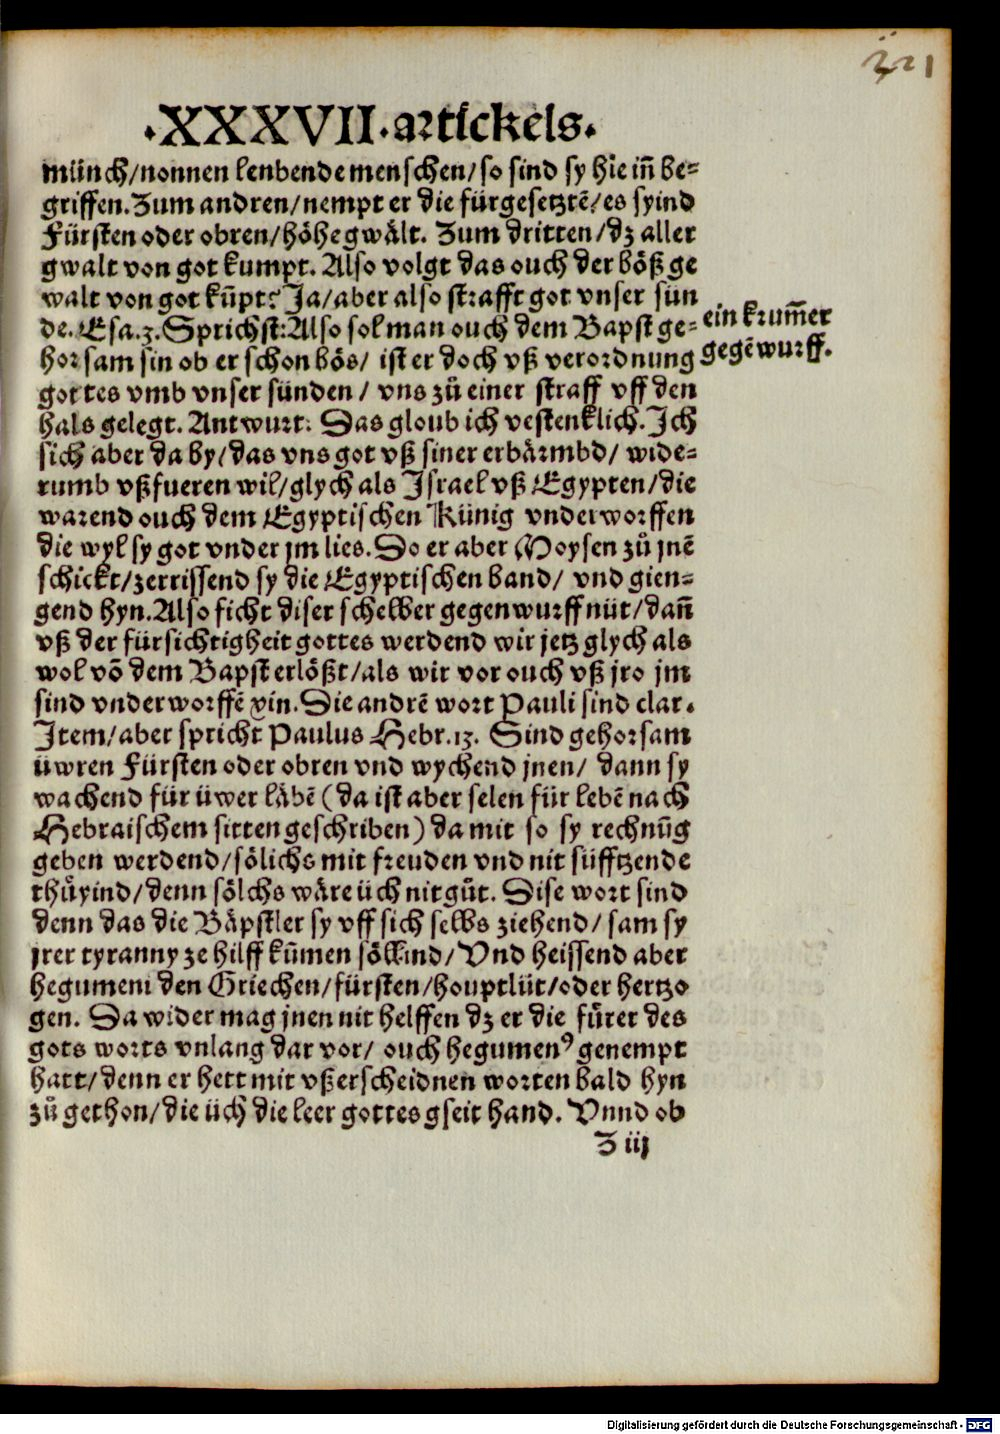 221
·XXXVII·artickels·
münch/nonnen lenbende menschen/so sind sy hie iñ be⸗
griffen. Zum andren/nempt er die fürgesetztē/es syind
Fürsten oder obren/höhe gwält. Zum dritten/dz aller
gwalt von got kumpt. Also volgt das ouch der böß ge
walt von got kūpt? Ja/aber also strafft got vnser sün
de. Esa.3. Sprichst: Also sol man ouch dem Bapst ge⸗
ein krum̄er
horsam sin ob er schon bös/ ist er doch vß verordnung
gegēwurff.
gottes vmb vnser sünden/ vns zů einer straff vff den
hals gelegt. Antwurt: Das gloub ich vestenklich. Ich
sich aber da by/das vns got vß siner erbärmbd/ wide⸗
rumb vßfueren wil/glych als Israel vß Egypten/die
warend ouch dem Egyptischen Künig vnderworffen
die wyl sy got vnder jm lies. So er aber Moysen zů jnē
schickt/zerrissend sy die Egyptischen band/ vnd gien⸗
gend hyn. Also ficht diser schelber gegenwurff nüt/dañ
vß der fürsichtigheit gottes werdend wir jetz glych als
wol vō dem Bapst erlößt/als wir vor ouch vß jro jm
sind vnderworffē xin. Die andrē wort Pauli sind clar.
Item/aber spricht Paulus Hebr.13. Sind gehorsam
üwren Fürsten oder obren vnd wychend jnen/ dann sy
wachend für üwer läbē (da ist aber selen für lebē nach
Hebraischem sitten geschriben) da mit so sy rechnūg
geben werdend/sölichs mit freuden vnd nit süfftzende
thüyind/denn sölchs wäre üch nit gůt. Dise wort sind
denn das die Bäpstler sy vff sich selbs ziehend/ sam sy
jrer tyranny ze hilff kūmen söllind/ Vnd heissend aber
hegumeni den Griechen/fürsten/houptlüt/oder hertzo
gen. Da wider mag jnen nit helffen dz er die fürer des
gots worts vnlang dar vor/ ouch hegumenꝰ genempt
hatt/denn er hett mit vßerscheidnen worten bald hyn
zů gethon/die üch die leer gottes gseit hand. Vnnd ob
Z iij
Digitalisierung gefördert durch die Deutsche Forschungsgemeinschaft - DFG